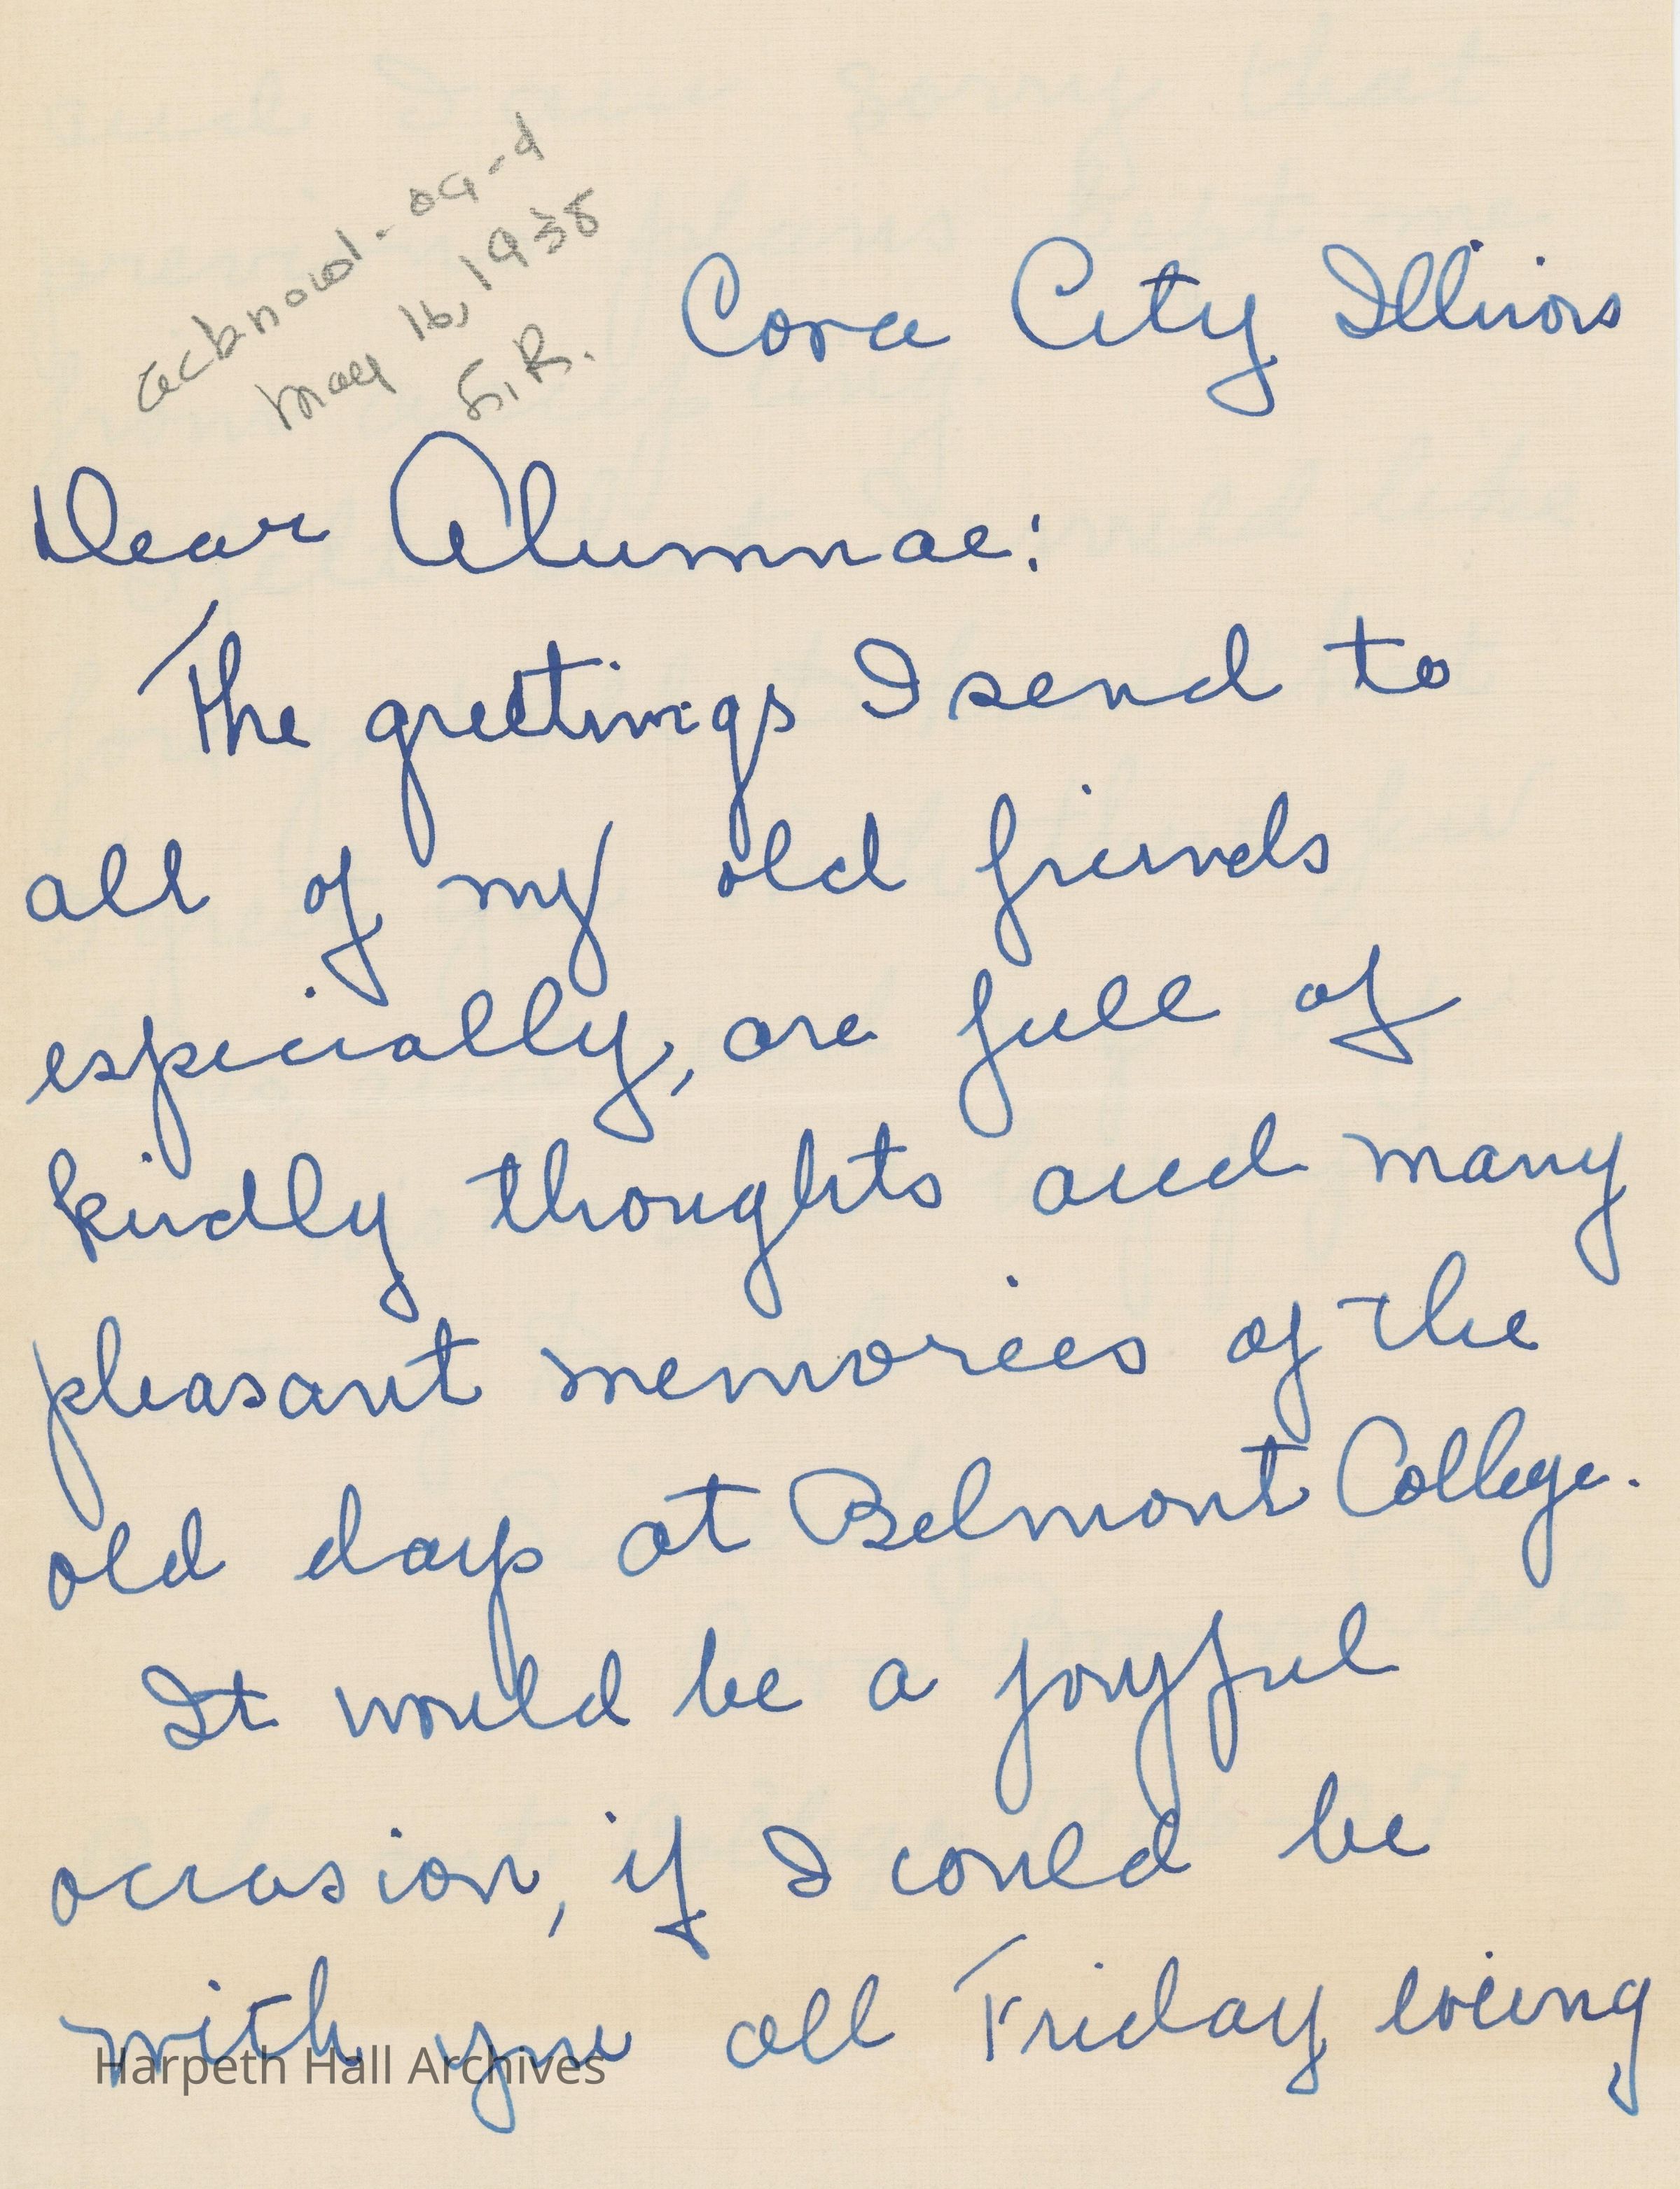 acknowl-ag-d
May 16, 1938
E.R.
Cora City Illinois
Dear Alumnae:
The greetings I send to
all of my old friends
especially, are full of
kindly thoughts and many
pleasant memories of the
old days at Belmont College.
It would be a joyful
occasion, if I could be
with you all Friday evening,
Harpeth Hall Archives